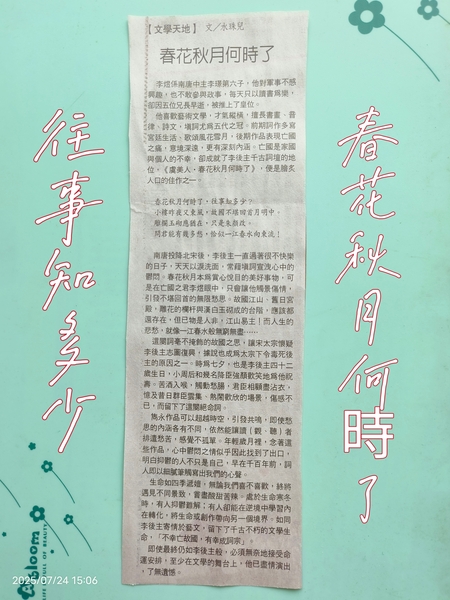 【文學天地】 文／水珠兒
春花秋月何時了
李煜係南唐中主李璟第六子，他對軍事不感
興趣，也不敢參與政事，每天只以讀書為樂，
卻因五位兄長早逝，被推上了皇位。
他喜歡藝術文學，才氣縱橫，擅長書畫、音
律、詩文，填詞尤為五代之冠。前期詞作多寫
宮廷生活、歌頌風花雪月，後期作品表現亡國
之痛，意境深遠、更有深刻內涵。亡國是家國
與個人的不幸，卻成就了李後主千古詞壇的地
位，《虞美人．春花秋月何時了》，便是膾炙
人口的佳作之一。
春花秋月何時了，往事知多少？
小樓昨夜又東風，故國不堪回首月明中。
雕欄玉砌應猶在，只是朱顏改。
問君能有幾多愁，恰似一江春水向東流！
南唐投降北宋後，李後主一直過著很不快樂
的日子，天天以淚洗面，常藉填詞宣洩心中的
鬱悶。春花秋月本為賞心悅目的美好事物，可
是在亡國之君李煜眼中，只會讓他觸景傷情，
引發不堪回首的無限愁思。故國江山、舊日宮
殿，雕花的欄杆與漢白玉砌成的台階，應該都
還存在，但已物是人非，江山易主！而人生的
悲愁，就像一江春水般無窮無盡……
這闋詞毫不掩飾的故國之思，讓宋太宗懷疑
李後主志圖復興，據說也成為太宗下令毒死後
主的原因之一。時為七夕，也是李後主四十二
歲生日，小周后和幾名降臣強顏歡笑地為他祝
壽。苦酒入喉，觸動愁腸，君臣相顧盡沾衣，
憶及昔日群臣雲集、熱鬧歡欣的場景，傷感不
已，而留下了這闋絕命詞。
雋永作品可以超越時空，引發共鳴，即使愁
思的內涵各有不同，依然能讓讀（觀、聽）者
排遣愁苦，感覺不孤單。年輕歲月裡，念著這
些作品，心中鬱悶之情似乎因此找到了出口，
明白抑鬱的人不只是自己，早在千百年前，詞
人即以細膩筆觸寫出我們的心聲。
生命如四季遞嬗，無論我們喜不喜歡，終將
遇見不同景致，嘗盡酸甜苦辣。處於生命寒冬
時，有人抑鬱難解；有人卻能在逆境中學習內
在轉化，將生命或創作帶向另一個境界。如同
李後主寄情於藝文，留下了千古不朽的文學生
命，「不幸亡故國，有幸成詞宗」。
即使最終仍如李後主般，必須無奈地接受命
運安排，至少在文學的舞台上，他已盡情演出
，了無遺憾。
春花秋月何時了
往事知多少
abloom
2025/07/24 15:06